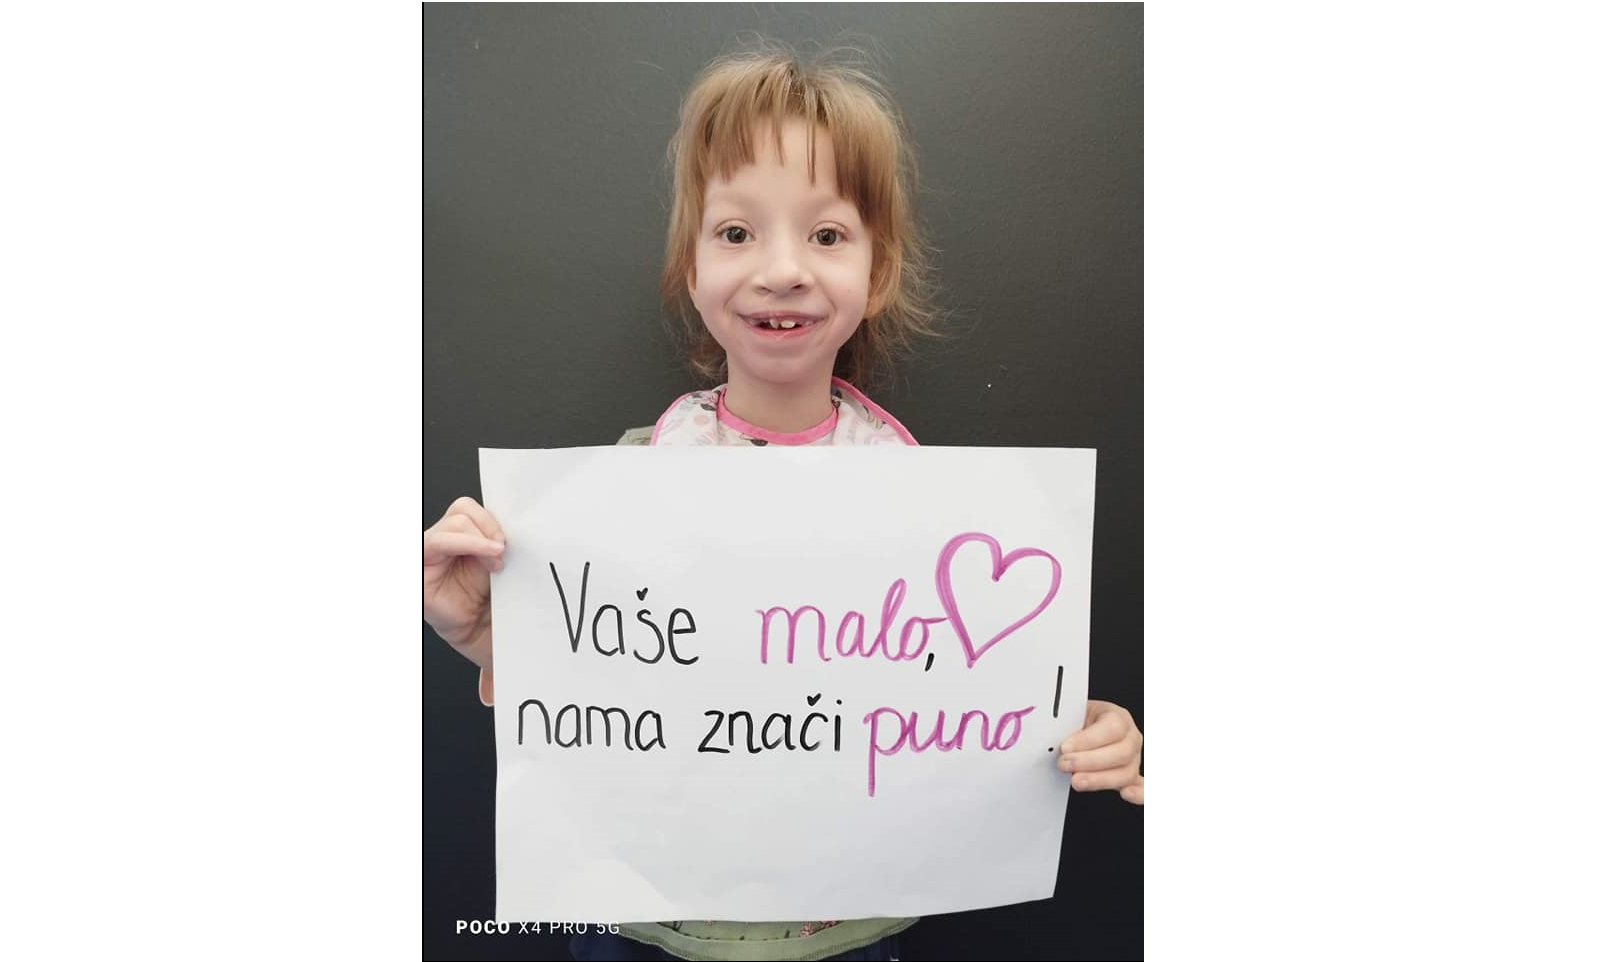 Vaše malo,
nama znači puno!
POCO X4 PRO 5G